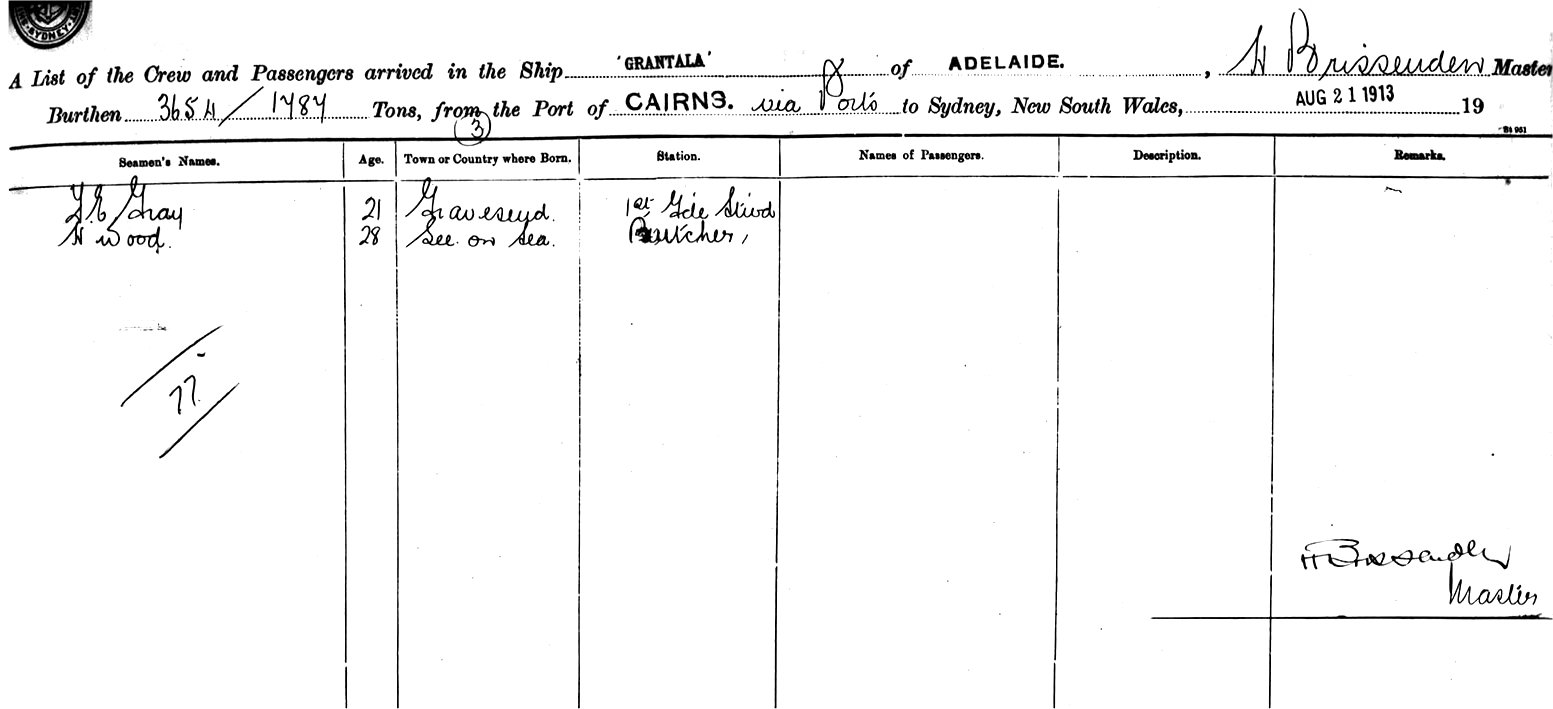 SYDNEY
A List of the Crew and Passengers arrived in the Ship 'GRANTALA' of ADELAIDE. , H Brissenden Master
Burthen 3654/1787 Tons, from the Port of CAIRNS. via Ports to Sydney, New South Wales, AUG 21 1913 19
3
Seamen's Names. Age. Town or Country where Born. Station. Names of Passengers. Description. Remarks.
Gray 21 Gravesend. 1st Stwd
H Wood. 28 See on Sea. Butcher,
77
H Brissenden
Master